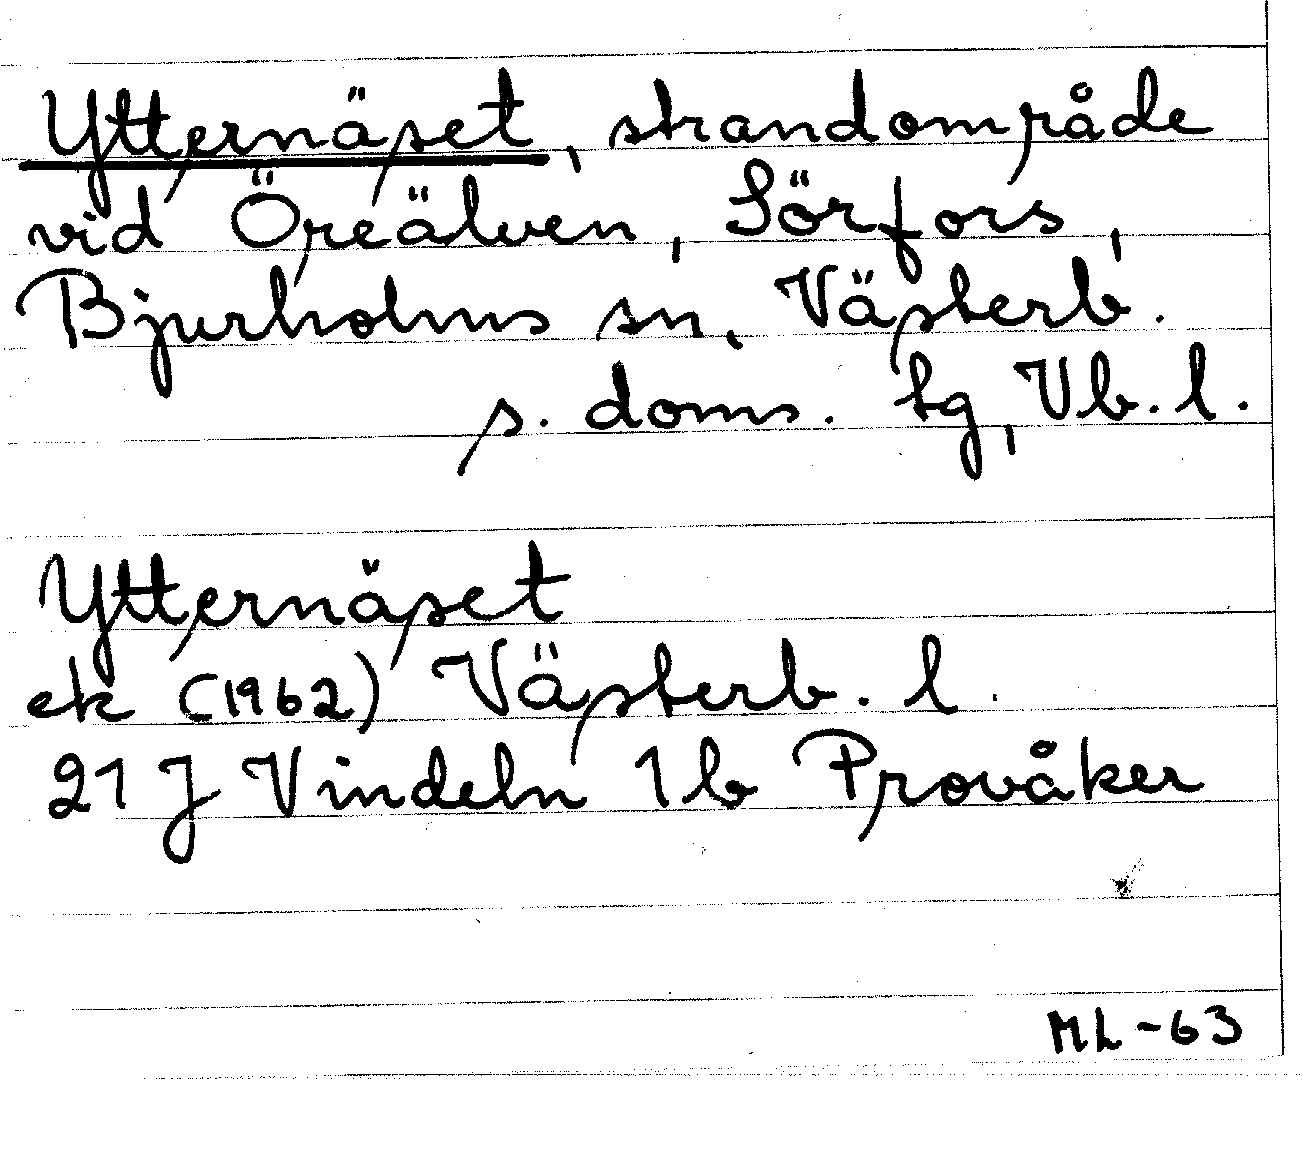 Ytternäset, strandområde
vid Öreälven, Sörfors,
Bjurholms sn, Västerb.
s. doms. tg, Vb. l.
Ytternäset
ek (1962) Västerb. l.
21 J Vindeln 1b Provåker
ML-63